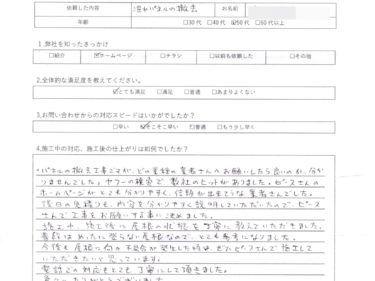 依頼した内容 温水パネルの撤去 お名前
年齢 □30代 □40代 ☑50代 □60代以上
1.弊社を知ったきっかけ
□紹介 ☑ホームページ □チラシ □以前も依頼した □その他
2.全体的な満足度を教えてください。
☑とても満足 □満足 □普通 □あまりよくない
3.お問い合わせからの対応スピードはいかがでしたか?
□早い ☑そこそこ早い □普通 □もう少し早く
4.施工中の対応、施工後の仕上がりは如何でしたか?
・パネルの撤去工事ですが、どの業種の業者さんへお願いしたら良いのか、分か
りませんでした。ヤフーの検索で数社のヒットがありました。ピースさんの
ホームページがとても分かりやすく、信頼が出来そうな業者さんでした。
後日の見積りも、内容を分かりやすく説明していただいたので、ピース
さんで工事をお願いする事に決めました。
施工中、施工後に屋根の状態を丁寧に教えていただきました。
普段はめったに登らない屋根なので、とても参考になりました。
今後も屋根に何か不具合が発生した時は、ぜひピースさんで施工して
いただきたいと思っています。
電話での対応もとても丁寧にして頂きました。
ありがとうございました